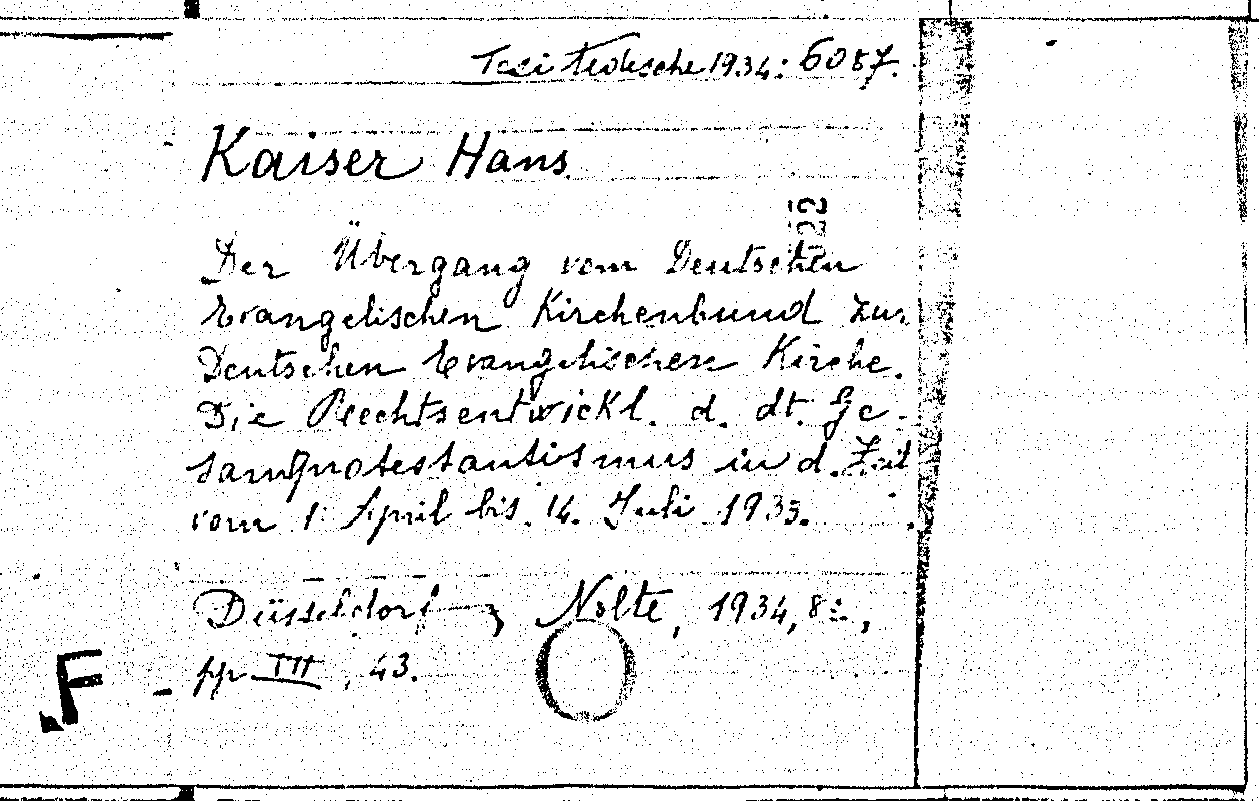 Tesi Tedesche 1934: 6087.
Kaiser Hans.
22
Der Übergang vom Deutschen
Evangelischen Kirchenbund zur
Deutschen Evangelischen Kirche.
Die Rechtsentwickl. d. dt. Ge-
samtprotestantismus in d. Zeit
vom 1. April bis 14. Juli 1933.
Düsseldorf, Nolte, 1934, 8º,
pp III, 43.
F